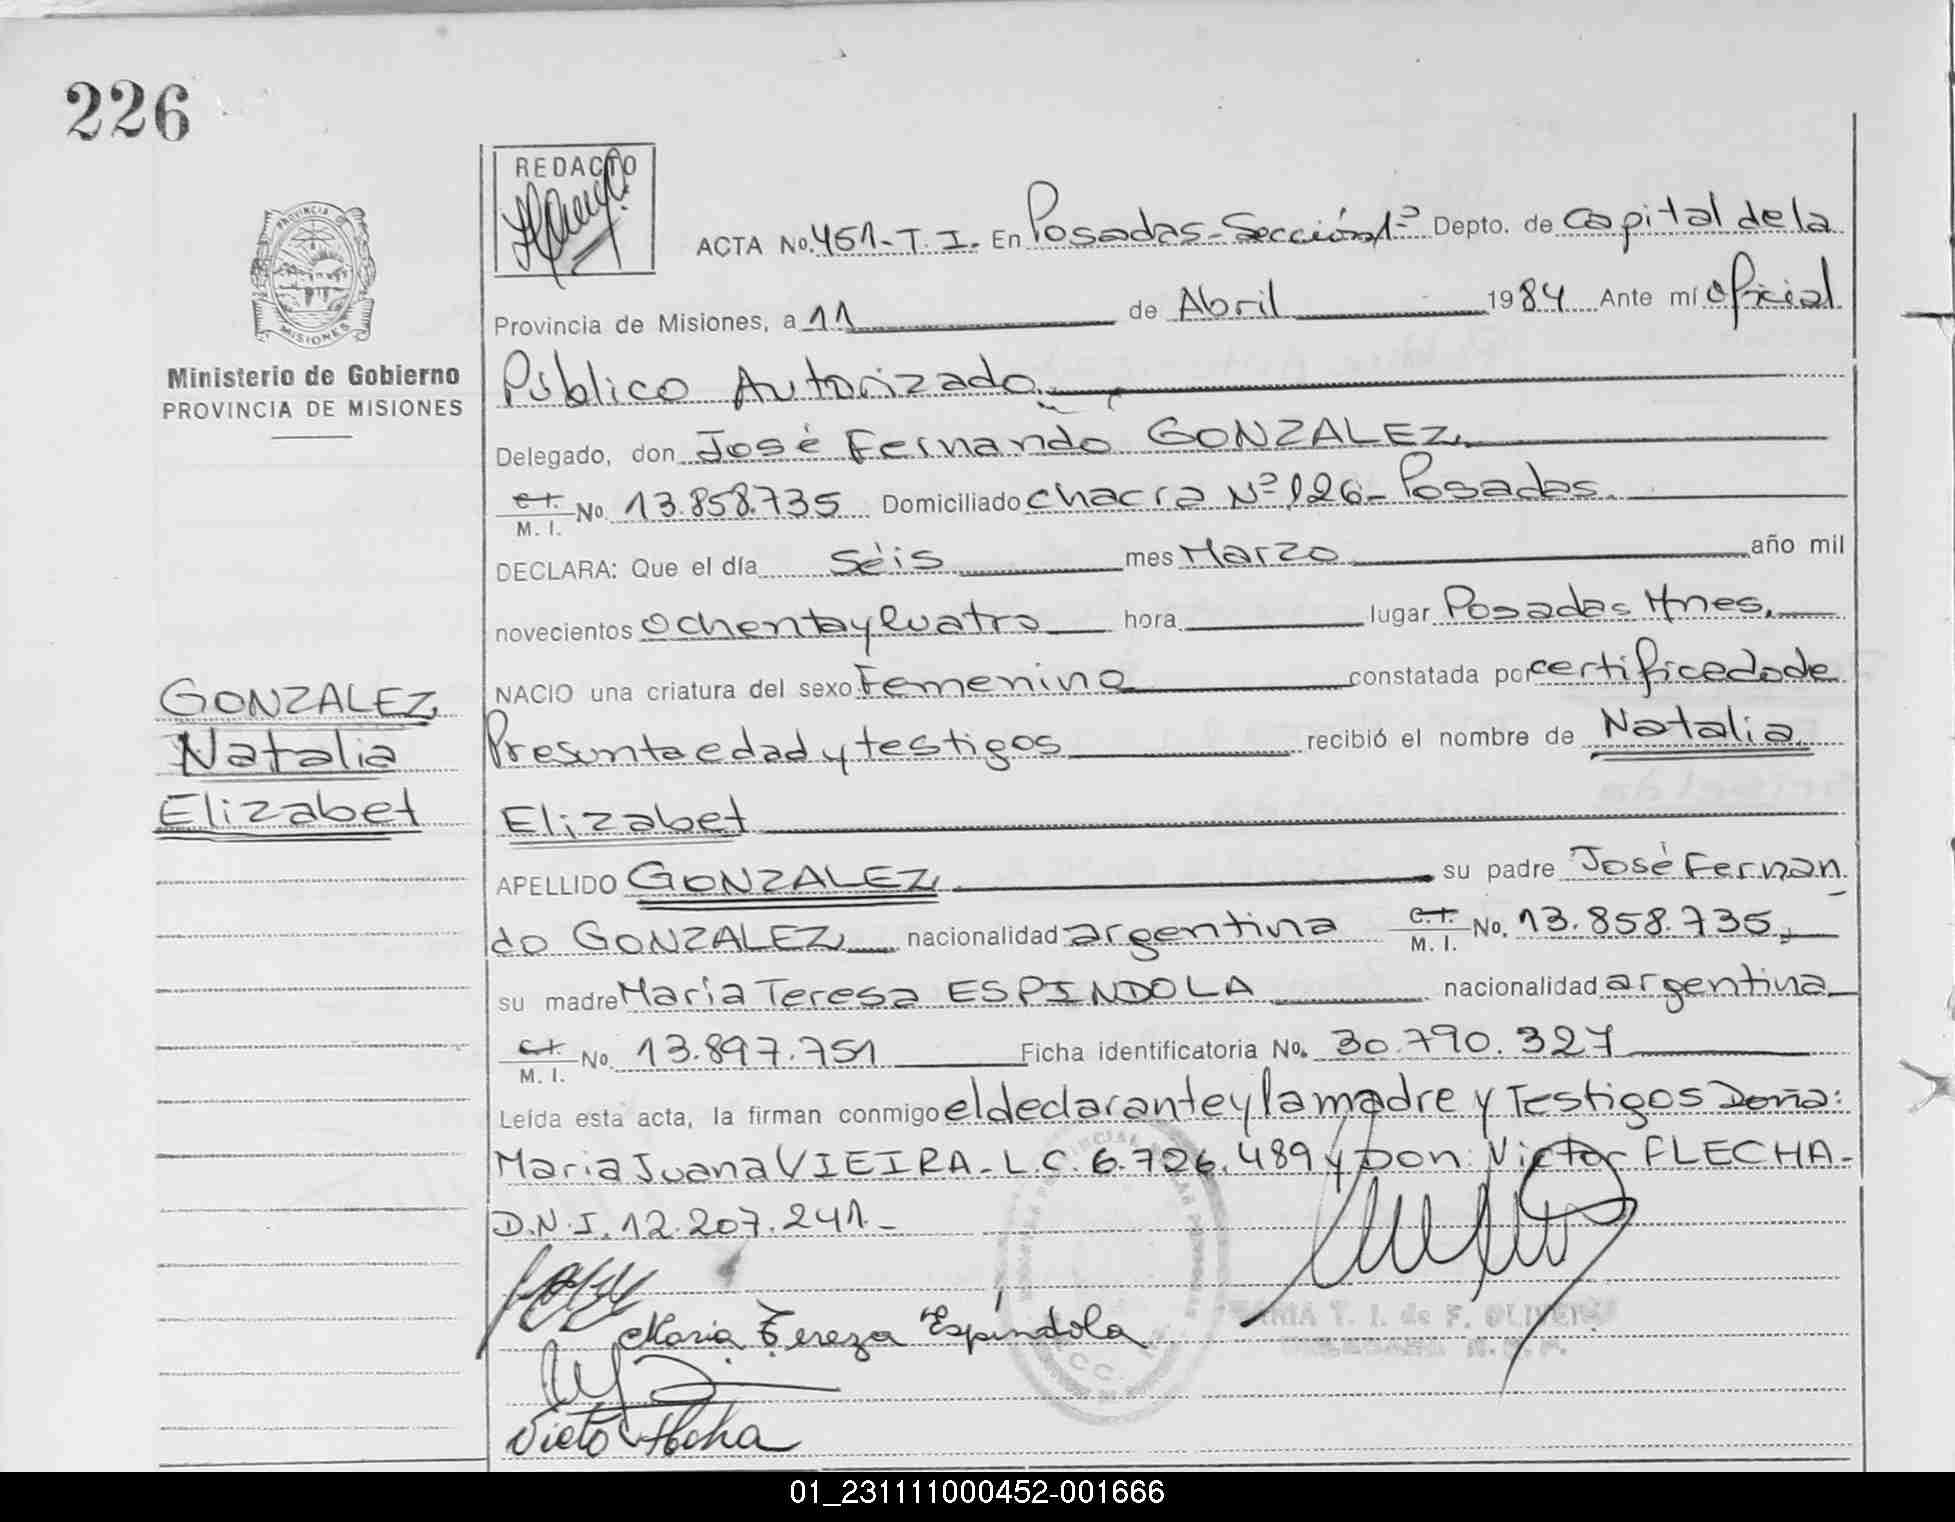 226
REDACTO
ACTA No. 451-T.I. En Posadas-Sección 1ª Depto. de Capital de la
PROVINCIA DE
MISIONES
Provincia de Misiones, a 11 de Abril 1984 Ante mí Oficial
Ministerio de Gobierno
PROVINCIA DE MISIONES
Público Autorizado.
Delegado, don José Fernando GONZALEZ,
C.I. M. I. No. 13.858.735 Domiciliado chacra Nº 126- Posadas.
DECLARA: Que el día seis mes Marzo año mil
novecientos ochenta y cuatro hora lugar Posadas Mnes.
NACIO una criatura del sexo Femenino constatada por certificado de
Presunta edad y testigos recibió el nombre de Natalia
Elizabet
GONZALEZ,
Natalia
Elizabet
APELLIDO GONZALEZ, su padre José Fernan
do GONZALEZ, nacionalidad argentina C.I. M. I. No. 13.858.735,
su madre María Teresa ESPINDOLA nacionalidad argentina
C.I. M. I. No. 13.897.751 Ficha identificatoria No. 30.790.327
Leída esta acta, la firman conmigo el declarante y la madre y Testigos Doña:
Maria Juana VIEIRA- L.C. 6.726.489 y Don: Victor FLECHA-
D.N.I. 12.207.241.-
Maria Tereza Espíndola
MARIA T. I. de F. OLIVEIRA
01_231111000452-001666